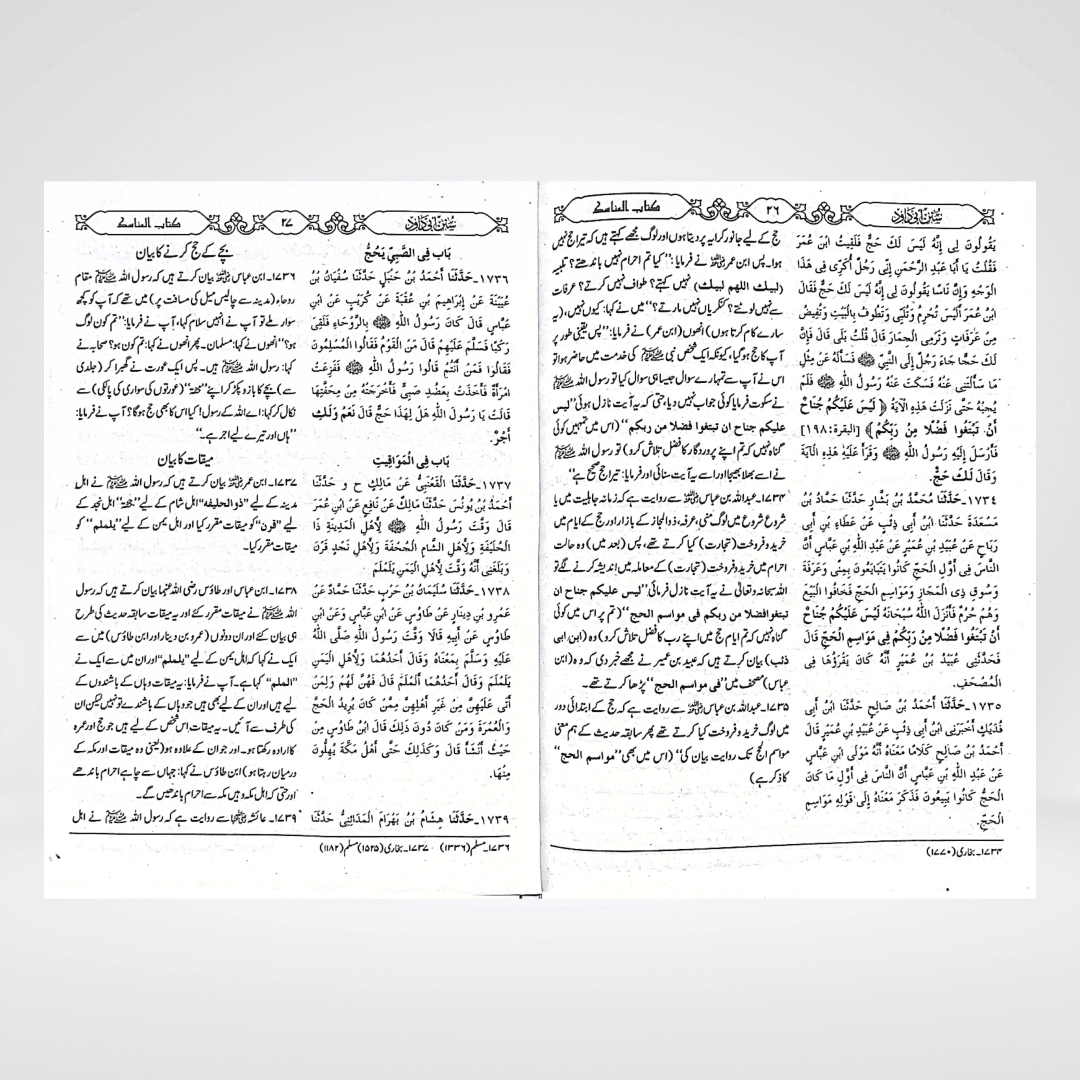 سُنن ابی داود ۲۶ کتاب المناسک
يَقُولُونَ لِى إِنَّهُ لَيْسَ لَكَ حَجٌّ فَلَقِيتُ ابْنَ عُمَرَ
فَقُلْتُ يَا أَبَا عَبْدِ الرَّحْمَنِ إِنِّى رَجُلٌ أُكَرِّى فِى هَذَا
الْوَجْهِ وَإِنَّ نَاسًا يَقُولُونَ لِى إِنَّهُ لَيْسَ لَكَ حَجٌّ فَقَالَ
ابْنُ عُمَرَ أَلَيْسَ تُحْرِمُ وَتُلَبِّى وَتَطُوفُ بِالْبَيْتِ وَتُفِيضُ
مِنْ عَرَفَاتٍ وَتَرْمِى الْجِمَارَ قَالَ قُلْتُ بَلَى قَالَ فَإِنَّ
لَكَ حَجًّا جَاءَ رَجُلٌ إِلَى النَّبِيِّ ﷺ فَسَأَلَهُ عَنْ مِثْلِ
مَا سَأَلْتَنِى عَنْهُ فَسَكَتَ عَنْهُ رَسُولُ اللهِ ﷺ فَلَمْ
يُجِبْهُ حَتَّى نَزَلَتْ هَذِهِ الْآيَةُ ﴿ لَيْسَ عَلَيْكُمْ جُنَاحٌ
أَنْ تَبْتَغُوا فَضْلًا مِنْ رَبِّكُمْ ﴾ [البقرة:۱۹۸]
فَأَرْسَلَ إِلَيْهِ رَسُولُ اللهِ ﷺ وَقَرَأَ عَلَيْهِ هَذِهِ الْآيَةَ
وَقَالَ لَكَ حَجٌّ.
۱۷۳۴۔حَدَّثَنَا مُحَمَّدُ بْنُ بَشَّارٍ حَدَّثَنَا حَمَّادُ بْنُ
مَسْعَدَةَ حَدَّثَنَا ابْنُ أَبِى ذِئْبٍ عَنْ عَطَاءِ بْنِ أَبِى
رَبَاحٍ عَنْ عُبَيْدِ بْنِ عُمَيْرٍ عَنْ عَبْدِ اللهِ بْنِ عَبَّاسٍ أَنَّ
النَّاسَ فِى أَوَّلِ الْحَجِّ كَانُوا يَتَبَايَعُونَ بِمِنًى وَعَرَفَةَ
وَسُوقِ ذِى الْمَجَازِ وَمَوَاسِمِ الْحَجِّ فَخَافُوا الْبَيْعَ
وَهُمْ حُرُمٌ فَأَنْزَلَ اللهُ سُبْحَانَهُ لَيْسَ عَلَيْكُمْ جُنَاحٌ
أَنْ تَبْتَغُوا فَضْلًا مِنْ رَبِّكُمْ فِى مَوَاسِمِ الْحَجِّ قَالَ
فَحَدَّثَنِى عُبَيْدُ بْنُ عُمَيْرٍ أَنَّهُ كَانَ يَقْرَؤُهَا فِى
الْمُصْحَفِ.
۱۷۳۵۔حَدَّثَنَا أَحْمَدُ بْنُ صَالِحٍ حَدَّثَنَا ابْنُ أَبِى
فُدَيْكٍ أَخْبَرَنِى ابْنُ أَبِى ذِئْبٍ عَنْ عُبَيْدِ بْنِ عُمَيْرٍ قَالَ
أَحْمَدُ بْنُ صَالِحٍ كَلَامًا مَعْنَاهُ أَنَّهُ مَوْلَى ابْنِ عَبَّاسٍ
عَنْ عَبْدِ اللهِ بْنِ عَبَّاسٍ أَنَّ النَّاسَ فِى أَوَّلِ مَا كَانَ
الْحَجُّ كَانُوا يَبِيعُونَ فَذَكَرَ مَعْنَاهُ إِلَى قَوْلِهِ مَوَاسِمِ
الْحَجِّ.
حج کے لیے جانور کرایہ پر دیتا ہوں اور لوگ مجھے کہتے ہیں کہ تیرا حج نہیں
ہوا۔ پس ابن عمر نے فرمایا: ''کیا تم احرام نہیں باندھتے؟ تلبیہ
(لبيك اللهم لبيك) نہیں کہتے؟ طواف نہیں کرتے؟ عرفات
سے نہیں لوٹتے؟ کنکریاں نہیں مارتے؟'' میں نے کہا: کیوں نہیں، (یہ
سارے کام کرتا ہوں) انھوں (ابن عمر) نے فرمایا: ''پس یقینی طور پر
آپ کا حج ہوگیا، کیونکہ ایک شخص نبی ﷺ کی خدمت میں حاضر ہوا تو
اس نے آپ سے تمہارے سوال جیسا ہی سوال کیا تو رسول اللہ ﷺ
نے سکوت فرمایا کوئی جواب نہیں دیا، حتی کہ یہ آیت نازل ہوئی ''لیس
علیکم جناح ان تبتغوا فضلا من ربکم'' (اس میں تمہیں کوئی
گناہ نہیں کہ تم اپنے پروردگار کا فضل تلاش کرو) تو رسول اللہ ﷺ
نے اسے بھلا بھیجا اور اسے یہ آیت سنائی اور فرمایا: تیرا حج صحیح ہے''
۱۷۳۴۔عبداللہ بن عباس سے روایت ہے کہ زمانہ جاہلیت میں یا
شروع شروع میں لوگ منی، عرفہ، ذوالمجاز کے بازار اور حج کے ایام میں
خرید و فروخت (تجارت) کیا کرتے تھے، پس (بعد میں) وہ حالت
احرام میں خرید و فروخت (تجارت) کے معاملہ میں اندیشہ کرنے لگے تو
اللہ سبحانہ و تعالیٰ نے یہ آیت نازل فرمائی ''لیس علیکم جناح ان
تبتغوا فضلا من ربکم فی مواسم الحج'' (تم پر اس میں کوئی
گناہ نہیں کہ تم ایام حج میں اپنے رب کا فضل تلاش کرو) وہ (ابن ابی
ذئب) بیان کرتے ہیں کہ عبید بن عمیر نے مجھے خبر دی کہ وہ (ابن
عباس) مصحف میں ''فی مواسم الحج'' پڑھا کرتے تھے۔
۱۷۳۵۔عبداللہ بن عباس سے روایت ہے کہ حج کے ابتدائی دور
میں لوگ خرید و فروخت کیا کرتے تھے پھر سابقہ حدیث کے ہم معنی
مواسم الحج تک روایت بیان کی'' (اس میں بھی ''مواسم الحج
کا ذکر ہے)
۱۷۳۴۔بخاری (۱۷۷۰)
سُنن ابی داود ۲۷ کتاب المناسک
بَاب فِى الصَّبِيِّ يَحُجُّ
۱۷۳۶۔حَدَّثَنَا أَحْمَدُ بْنُ حَنْبَلٍ حَدَّثَنَا سُفْيَانُ بْنُ
عُيَيْنَةَ عَنْ إِبْرَاهِيمَ بْنِ عُقْبَةَ عَنْ كُرَيْبٍ عَنْ ابْنِ
عَبَّاسٍ قَالَ كَانَ رَسُولُ اللهِ ﷺ بِالرَّوْحَاءِ فَلَقِىَ
رَكْبًا فَسَلَّمَ عَلَيْهِمْ قَالَ مَنْ الْقَوْمُ فَقَالُوا الْمُسْلِمُونَ
فَقَالُوا فَمَنْ أَنْتُمْ قَالُوا رَسُولُ اللهِ ﷺ فَفَزِعَتْ
امْرَأَةٌ فَأَخَذَتْ بِعَضُدِ صَبِيٍّ فَأَخْرَجَتْهُ مِنْ مِحَفَّتِهَا
قَالَتْ يَا رَسُولَ اللهِ هَلْ لِهَذَا حَجٌّ قَالَ نَعَمْ وَلَكِ
أَجْرٌ.
بَاب فِى الْمَوَاقِيتِ
۱۷۳۷۔حَدَّثَنَا الْقَعْنَبِيُّ عَنْ مَالِكٍ ح و حَدَّثَنَا
أَحْمَدُ بْنُ يُونُسَ حَدَّثَنَا مَالِكٌ عَنْ نَافِعٍ عَنْ ابْنِ عُمَرَ
قَالَ وَقَّتَ رَسُولُ اللهِ ﷺ لِأَهْلِ الْمَدِينَةِ ذَا
الْحُلَيْفَةِ وَلِأَهْلِ الشَّامِ الْجُحْفَةَ وَلِأَهْلِ نَجْدٍ قَرْنَ
وَبَلَغَنِى أَنَّهُ وَقَّتَ لِأَهْلِ الْيَمَنِ يَلَمْلَمَ
۱۷۳۸۔حَدَّثَنَا سُلَيْمَانُ بْنُ حَرْبٍ حَدَّثَنَا حَمَّادٌ عَنْ
عَمْرِو بْنِ دِينَارٍ عَنْ طَاوُسٍ عَنْ ابْنِ عَبَّاسٍ وَعَنْ ابْنِ
طَاوُسٍ عَنْ أَبِيهِ قَالَا وَقَّتَ رَسُولُ اللهِ صَلَّى اللهُ
عَلَيْهِ وَسَلَّمَ بِمَعْنَاهُ وَقَالَ أَحَدُهُمَا وَلِأَهْلِ الْيَمَنِ
يَلَمْلَمَ وَقَالَ أَحَدُهُمَا أَلَمْلَمَ قَالَ فَهُنَّ لَهُمْ وَلِمَنْ
أَتَى عَلَيْهِنَّ مِنْ غَيْرِ أَهْلِهِنَّ مِمَّنْ كَانَ يُرِيدُ الْحَجَّ
وَالْعُمْرَةَ وَمَنْ كَانَ دُونَ ذَلِكَ قَالَ ابْنُ طَاوُسٍ مِنْ
حَيْثُ أَنْشَأَ قَالَ وَكَذَلِكَ حَتَّى أَهْلُ مَكَّةَ يُهِلُّونَ
مِنْهَا.
۱۷۳۹۔حَدَّثَنَا هِشَامُ بْنُ بَهْرَامَ الْمَدَائِنِىُّ حَدَّثَنَا
بچے کے حج کرنے کا بیان
۱۷۳۶۔ابن عباس بیان کرتے ہیں کہ رسول اللہ ﷺ مقام
روحاء (مدینہ سے چالیس میل کی مسافت پر) میں تھے کہ آپ کو کچھ
سوار ملے تو آپ نے انہیں سلام کہا، آپ نے فرمایا: ''تم کون لوگ
ہو؟'' انھوں نے کہا: مسلمان۔ پھر انھوں نے کہا: تم کون ہو؟ صحابہ نے
کہا: رسول اللہ ﷺ ہیں۔ پس ایک عورت نے گھبرا کر (جلدی
سے) بچے کا بازو پکڑ کر اپنے ''محفہ'' (عورتوں کی سواری کی پالکی) سے
نکال کر کہا: اے اللہ کے رسول! کیا اس کا بھی حج ہوگا؟ آپ نے فرمایا:
''ہاں اور تیرے لیے اجر ہے۔''
میقات کا بیان
۱۷۳۷۔ابن عمر بیان کرتے ہیں کہ رسول اللہ ﷺ نے اہل
مدینہ کے لیے ''ذوالحلیفہ'' اہل شام کے لیے ''جحفہ'' اہل نجد کے
لیے ''قرن'' کو میقات مقرر کیا اور اہل یمن کے لیے ''یلملم'' کو
میقات مقرر کیا۔
۱۷۳۸۔ابن عباس اور طاؤس رضی اللہ عنہما بیان کرتے ہیں کہ رسول
اللہ ﷺ نے میقات مقرر کئے اور یہ میقات سابقہ حدیث کی طرح
ہی بیان کئے اور ان دونوں (عمرو بن دینار اور ابن طاؤس) میں سے
ایک نے کہا کہ اہل یمن کے لیے ''یلملم'' اور ان میں سے ایک نے
''الملم'' کہا ہے۔ آپ نے فرمایا: یہ میقات وہاں کے باشندوں کے
لیے ہیں اور ان کے لیے بھی ہیں جو وہاں کے باشندے تو نہیں لیکن ان
کی طرف سے آئیں۔ یہ میقات، اس شخص کے لیے ہیں جو حج اور عمرہ
کا ارادہ رکھتا ہو۔ اور جو ان کے علاوہ ہو (یعنی وہ میقات اور مکہ کے
درمیان رہتا ہو) ابن طاؤس نے کہا: جہاں سے چاہے احرام باندھے
اور حتی کہ اہل مکہ وہیں مکہ سے احرام باندھیں گے۔
۱۷۳۹۔عائشہ سے روایت ہے کہ رسول اللہ ﷺ نے اہل
۱۷۳۶۔مسلم (۱۳۳۶) ۱۷۳۷۔بخاری (۱۵۲۵) مسلم (۱۱۸۲)